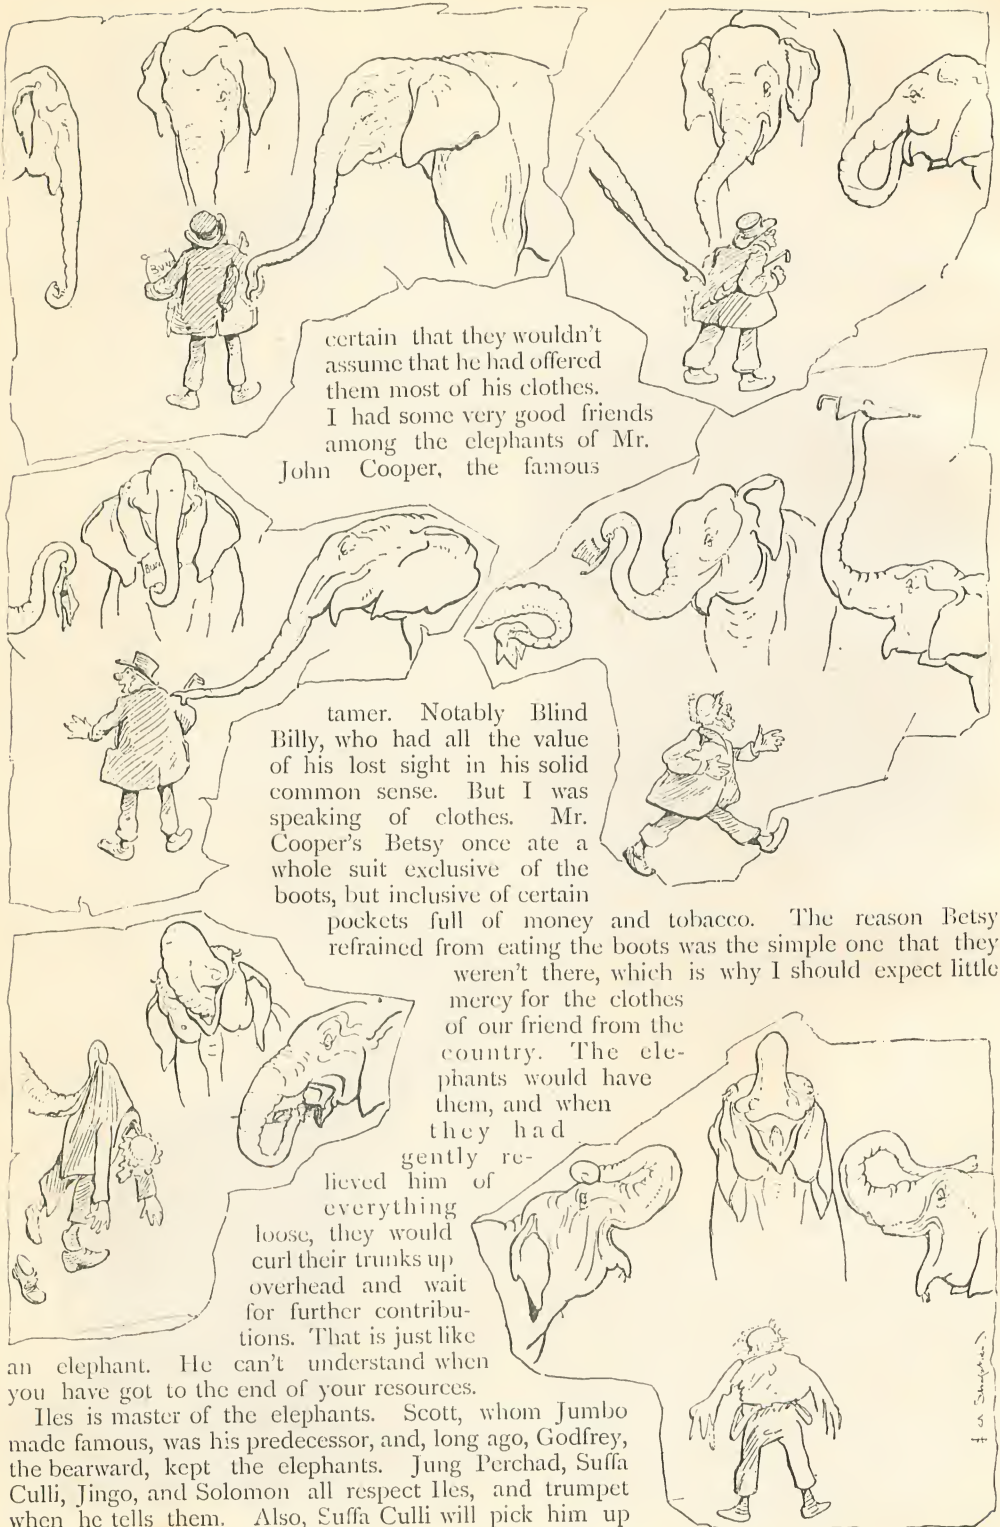 BUNS
certain that they wouldn't
assume that he had offered
them most of his clothes.
I had some very good friends
among the elephants of Mr.
John Cooper, the famous
BUNS
tamer. Notably Blind
Billy, who had all the value
of his lost sight in his solid
common sense. But I was
speaking of clothes. Mr.
Cooper's Betsy once ate a
whole suit exclusive of the
boots, but inclusive of certain
pockets full of money and tobacco. The reason Betsy
refrained from eating the boots was the simple one that they
weren't there, which is why I should expect little
mercy for the clothes
of our friend from the
country. The ele-
phants would have
them, and when
they had
gently re-
lieved him of
everything
loose, they would
curl their trunks up
overhead and wait
for further contribu-
tions. That is just like
an elephant. He can't understand when
you have got to the end of your resources.
Iles is master of the elephants. Scott, whom Jumbo
made famous, was his predecessor, and, long ago, Godfrey,
the bearward, kept the elephants. Jung Perchad, Suffa
Culli, Jingo, and Solomon all respect Iles, and trumpet
when he tells them. Also, Suffa Culli will pick him up